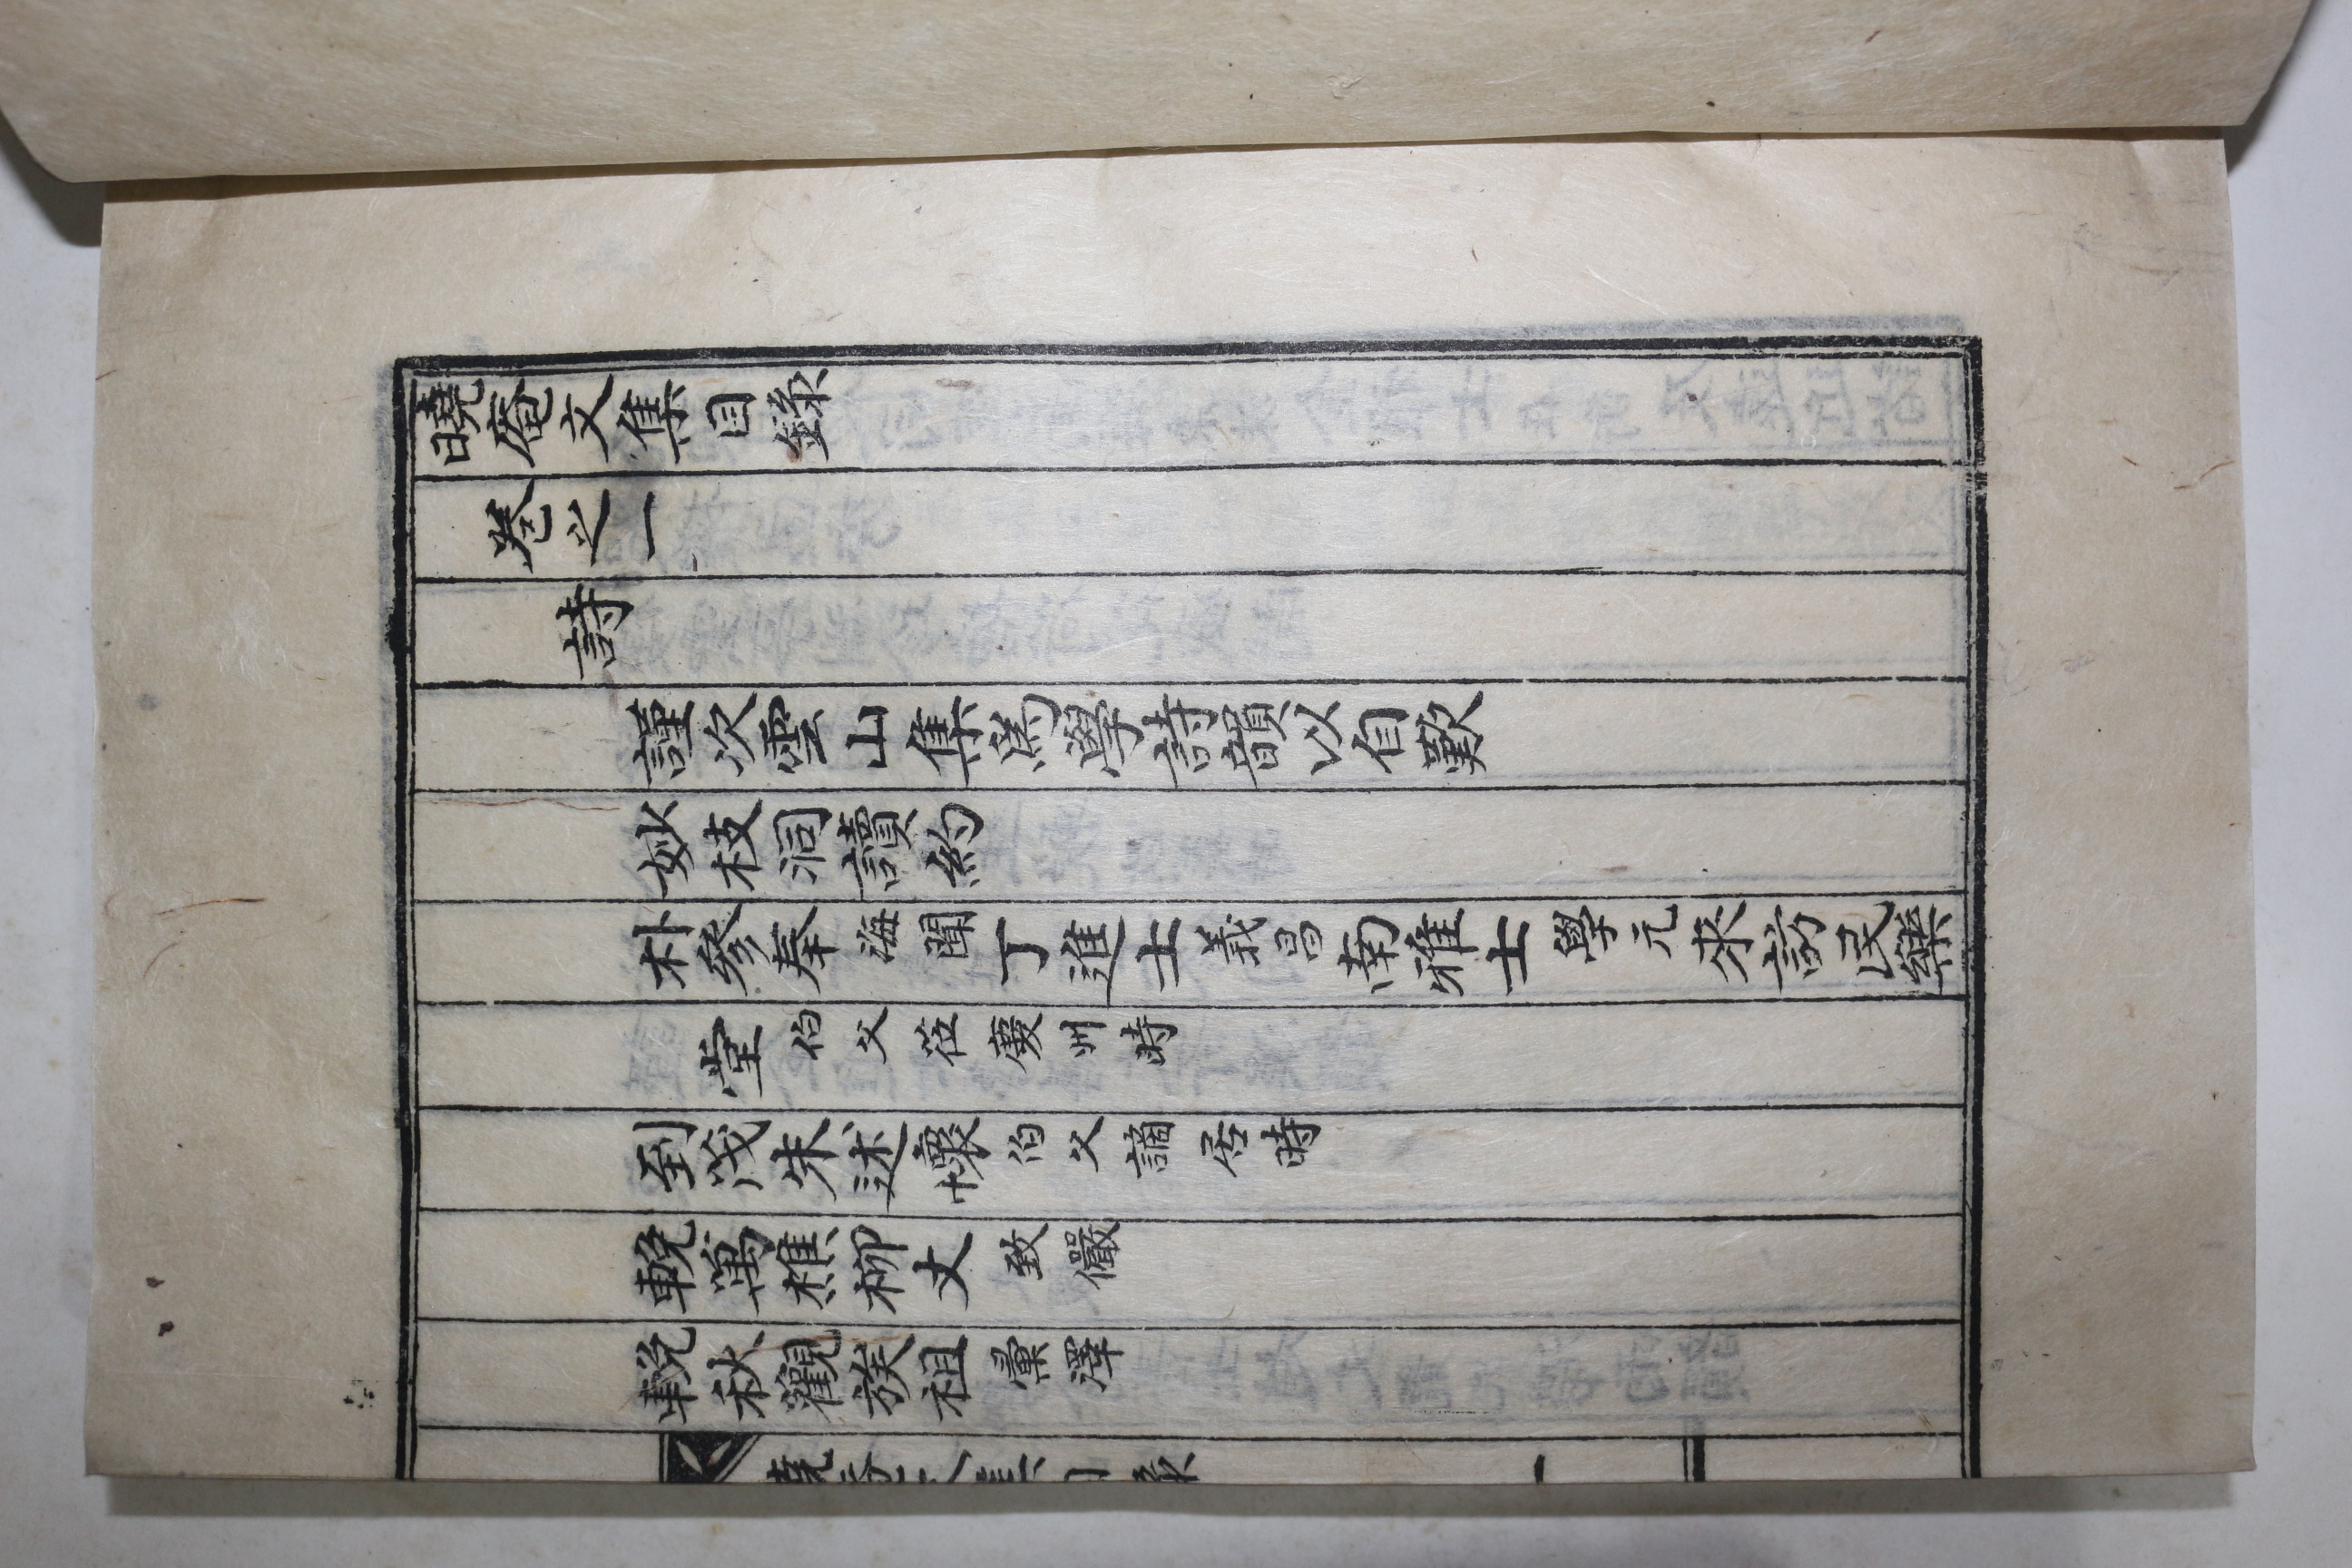 曉庵文集目錄
卷之一
詩
謹次雲山集爲學詩韻以自歎
妙枝洞讀約
朴參奉海聞丁進士義昌南雅士學元來訪民樂
堂伯父莅慶州時
到茂朱述懷伯父謫居時
輓萬樵柳丈致儼
輓秋觀族祖彙澤
曉庵文集目錄 一